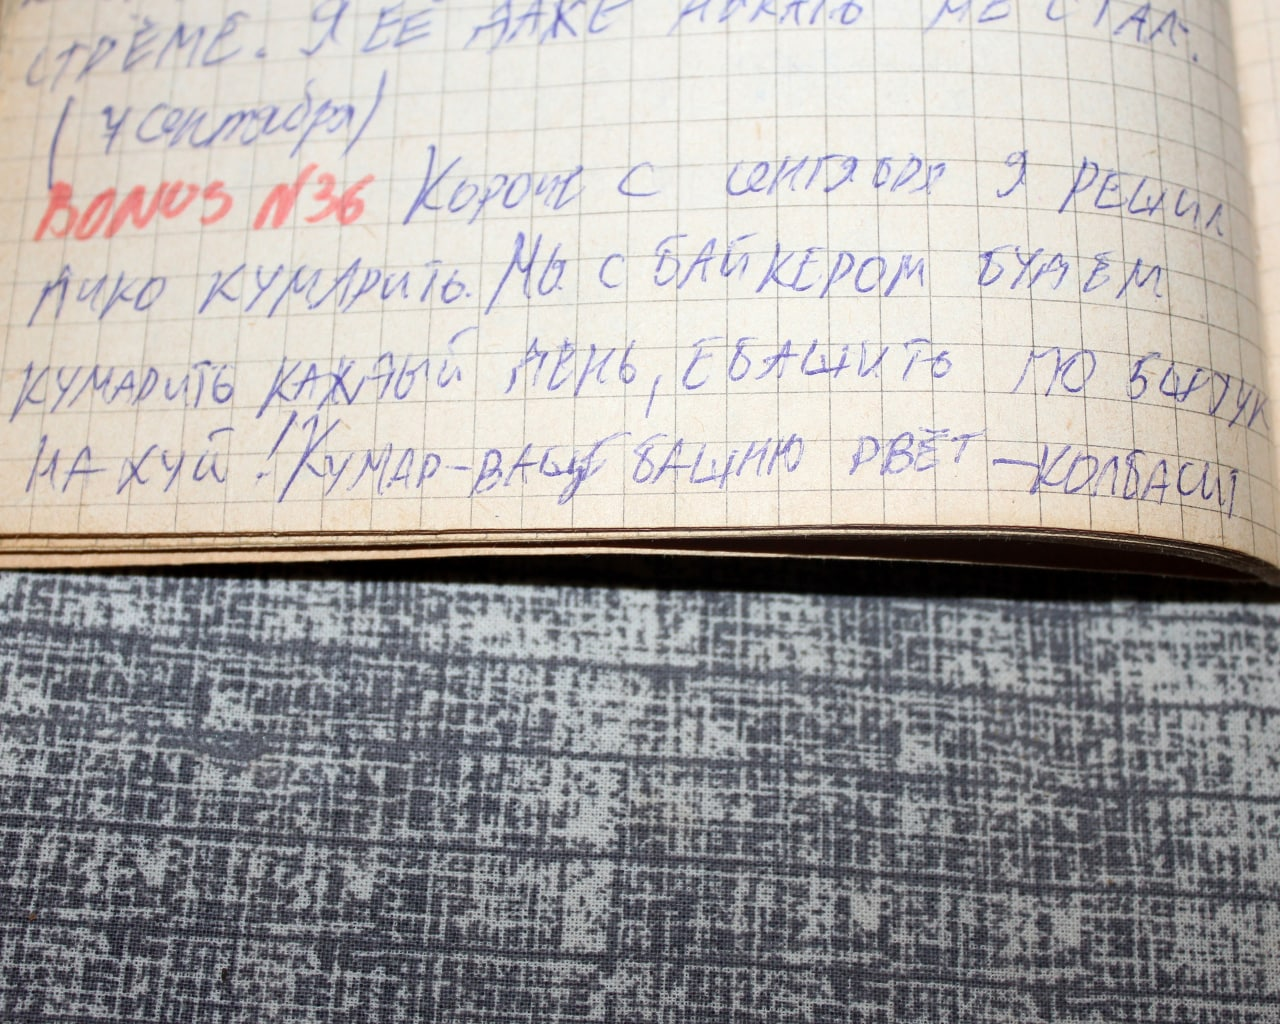 СТРЁМЕ. Я ЕЁ ДАЖЕ ИСКАТЬ НЕ СТАЛ.
(7 сентября)
BONUS №36 Короче с сентября я РЕШИЛ
ДИКО КУМАРИТЬ. МЫ С БАЙКЕРОМ БУДЕМ
КУМАРИТЬ КАЖДЫЙ ДЕНЬ, ЕБАШИТЬ ПО
НА ХУЙ! КУМАР-ВАЩЕ БАШНЮ РВЁТ – КОЛБАСИТ